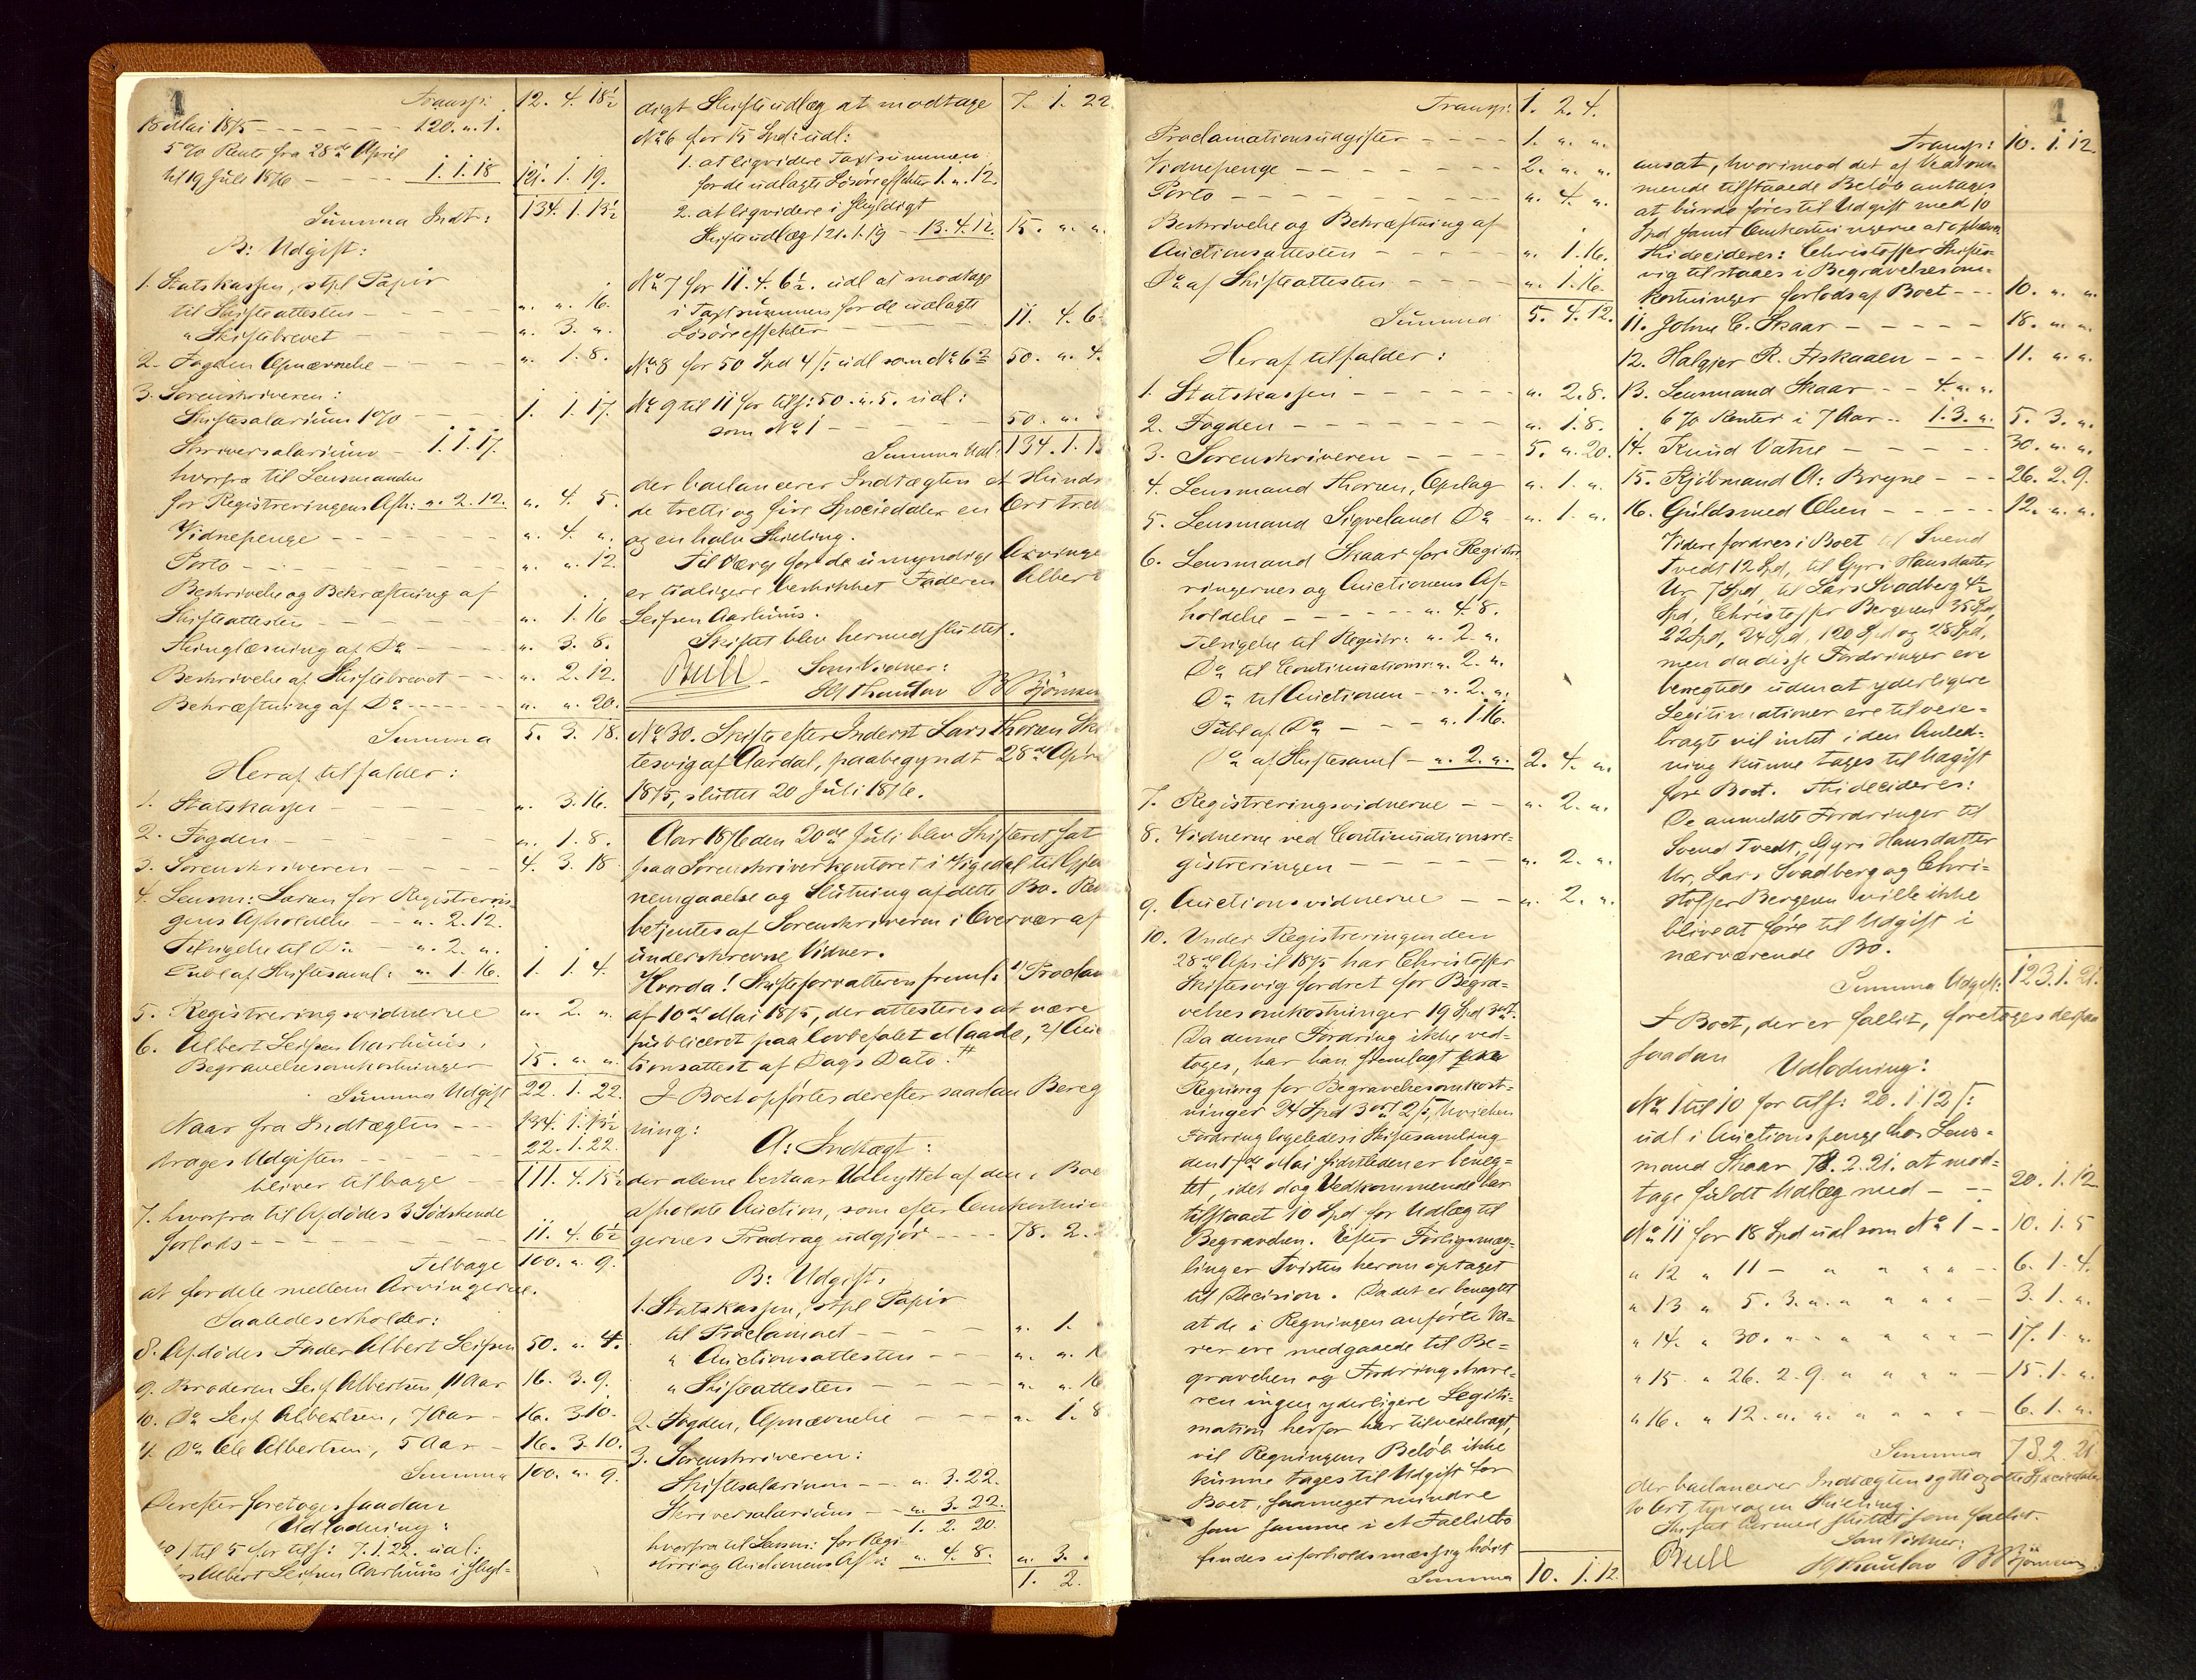 1
Transp: 12. 4. 18½
18 Mai 1875 - - - - - 120. „. 1.
5% Rente fra 28de April
til 19 Juli 1876 - - - 1. 1. 18 121. 1. 19.
Summa Indt: 134. 1. 13½
B: Udgift:
1. Statskassen, stpl Papir
til Skifteattesten - - - „. „. 16.
„ Skiftebrevet - - - „. 3. „.
2. Fogden Opnævnelse - - - „. 1. 8.
3. Sorenskriveren:
Skiftesalarium 1% - - 1. 1. 17.
Skriversalarium - 1. 1. 17.
hvorfra til Lensmanden
for Registreringens Afh: „. 2. 12. „. 4. 5.
Vidnepenge - - - - „. 4. „.
Porto - - - - „. „. 12.
Beskrivelse og Bekræftning af
Skifteattesten - - - - „. 1. 16
Thinglæsning af Do - - - „. 3. 8.
Beskrivelse af Skiftebrevet - - „. 2. 12.
Bekræftning af Do - - - - „. „. 20.
Summa 5. 3. 18.
Heraf tilfalder:
1. Statskassen - - - - „. 3. 16.
2. Fogden - - - - „. 1. 8.
3. Sorenskriveren - - - - 4. 3. 18
4. Lensm: for Registrerin-
gens Afholdelse - „. 2. 12.
Tilsigelse til Do - „. 2. „.
Publ af Skiftesaml: „. 1. 16. 1. 1. 4.
5. Registreringsvidnerne „. 2. „.
6. Albert Leifsen Aarhuus,
Begravelsesomkostninger 15. „. „.
Summa Udgift 22. 1. 22.
Naar fra Indtægten - - - 134. 1. 13½
drages Udgiften - - - 22. 1. 22.
bliver tilbage - 111. 4. 15½
7. hvorfra til Afdødes 3 Sødskende
forlods - - - - 11. 4. 6½
Tilbage 100. „. 9.
at fordele mellem Arvingerne.
Saaledes erholder:
8. Afdødes Fader Albert Leifsen 50. „. 4.
9. Broderen Leif Albertsen, 11 Aar 16. 3. 9.
10. Do Leif Albertsen, 7 Aar - 16. 3. 10.
11. Do Ole Albertsen, 5 Aar - 16. 3. 10.
Summa 100. „. 9.
Derefter foretoges saadan
Udlodning:
No 1 til 5 for tilf: 7. 1. 22. udl:
hos Albert Leifsen Aarhuus i skyl=
digt Skifteudlæg at modtage 7. 1. 22
No 6 for 15 Spd: udl:
1. at liqvidere Taxtsummen
for de udlagte Løsøreeffekter 1. „. 12.
2. at liqvidere i skyldigt
Skifteudlæg 121. 1. 19 - 13. 4. 12. 15. „. „.
No 7 for 11. 4. 6½. udl at modtage
i Taxtsummen for de udlagte
Løsøreeffekter - - - 11. 4. 6
No 8 for 50 Spd 4/: udl som No 6 2 50. „. 4.
No 9 til 11 for tilf: 50. „. 5. udl:
som No 1 - - - 50. „.
Summa Udl: 134. 1. 13
der balancerer Indtægten et Hundre
de tretti og fire Speciedaler en Ort tret
og en halv Skilling.
Til Værge for de umyndige Arvinge
er tidligere beskikket Faderen Albert
Leifsen Aarhuus.
Skiftet blev hermed sluttet.
Bull - Som Vidner:
B Bjørnsen
No 30. Skifte efter Inderst Lars Thorsen Ski
tesvig af Aardal, paabegyndt 28de April
1875, sluttet 20 Juli 1876.
Aar 1876 den 20de Juli blev Skifteret sat
paa Sorenskriverkontoret i Vigedal til Gjen
nemgaaelse og Slutning af dette Bo. Ret
betjentes af Sorenskriveren i Overvær af
underskrevne Vidner.
Hvorda! Skifteforvalteren freml: 1) Proclam
af 10de Mai 1875, der attesteres at være
publiceret paa lovbefalet Maade, 2) Auc
tionsattest af Dags Dato.
I Boet opførtes derefter saadan Bereg
ning:
A: Indtægt:
der alene bestaar Udbyttet af den i Boe
afholdte Auction, som efter Omkostnin
gernes Fradrag udgjør - - - - 78. 2.
B: Udgift,
1. Statskassen, stpl Papir
til Proclamaet - - - - „. 1.
„ Auctionsattesten - - „. „. 1
„ Skifteattesten - - - „. „. 16
2. Fogden, Opnævnelse - - - „. 1. 8
3. Sorenskriveren:
Skiftesalarium - - „. 3. 22.
Skriversalarium - - „. 3. 22.
1. 2. 20.
hvorfra til Lensm: for Regi
string og Auctionens Afh: „. 4. 8. „. 3.
1. 2.
1
Transp: 1. 2. 4.
Proclamationsudgifter - - - - 1. „. „.
Vidnepenge - - - - 2. „. „.
Porto - - - - „. 4. „.
Beskrivelse og Bekræftning af
Auctionsattesten - - - - „. 1. 16.
Do af Skifteattesten - - - - „. 1. 16.
Summa 5. 4. 12.
Heraf tilfalder:
1. Statskassen - - - - „. 2. 8.
2. Fogden - - - - „. 1. 8.
3. Sorenskriveren - - - - 5. „. 20.
4. Lensmand Thorsen, Opslag „. 1. „.
5. Lensmand Sigveland Do „. 1. „.
6. Lensmand Skaar for Registre
ringernes og Auctionens Af=
holdelse - - - - „. 4. 8.
Tilsigelse til Registr: „. 2. „.
Do til Continuationsr: „. 2. „.
Do til Auctionen - - „. 2. „.
Publ af Do - - - „. 1. 16.
Do af Skiftesaml - „. 2. „. 2. 4. „.
7. Registreringsvidnerne - - „. 2. „.
8. Vidnerne ved Continuationsre=
gistreringen - - - - „. 2. „.
9. Auctionsvidnerne - - „. 2. „.
10. Under Registreringen den
28de April 1875 har Christoffer
Skiftesvig fordret for Begra=
velsesomkostninger 19 Spd 3 ort.
Da denne Fordring ikke ved=
toges, har han fremlagt
Regning for Begravelsesomkost=
ninger 24 Spd 3 ort 2/:, hvilken
Fordring ligeledes i Skiftesamling
den 17de Mai sidstleden er beneg=
tet, idet dog Vedkommende har
tilstaaet 10 Spd for Udlæg til
Begravelsen. Efter Forligsmæg=
linger Tvisten herom optaget
til Decision. Da det er benegtet
at de i Regningen anførte Va=
rer ere medgaaede til Be=
gravelsen og Fordringshave=
ren ingen yderligere Legiti=
mation herfor har tilveiebragt,
vil Regningens Beløb ikke
kunne tages til Udgift for
Boet, saameget mindre
som samme i et Fallitbo
findes uforholdsmæssig høit
Summa 10. 1. 12.
Transp: 10. 1. 12.
ansat, hvorimod det af Vedkom
mende tilstaaede Beløb antages
at burde føres til Udgift med 10
Spd samt Omkostningerne at ophæve
Thi decideres: Christoffer Skiftes
vig tilstaaes i Begravelsesom=
kostninger forlods af Boet - - - 10. „. „.
11. Johne C. Skaar - - - - - 18. „. „.
12. Halgjer R. Fiskaaen - - - 11. „. „.
13. Lensmand Skaar - - 4. „. „.
6% Renter i 7 Aar - - 1. 3. „. 5. 3. „.
14. Knud Vatne - - - - - 30. „. „.
15. Kjøbmand A: Bryne - - - 26. 2. 9.
16. Guldsmed Olsen - - - - - 12. „. „.
Videre fordres i Boet til Svend
Tvedt 12 Spd, til Gyri Hansdatter
Ur 7 Spd, til Lars Svadberg 4½
Spd, Christoffer Bergesen 35 Spd,
22 Spd, 24 Spd, 120 Spd og 28 Spd,
men da disse Fordringer ere
benegtede uden at yderligere
Legitimationer ere tilveie=
bragte vil intet i den Anled=
ning kunne tages til Udgift
for Boet. Thi decideres:
De anmeldte Fordringer til
Svend Tvedt, Gyri Hansdatter
Ur, Lars Svadberg og Chri=
stoffer Bergesen ville ikke
blive at føre til Udgift i
nærværende Bo.
Summa Udgift: 123. 1. 21.
I Boet, der er fallit, foretoges derpaa
saadan
Udlodning:
No 1 til 10 for tilf: 20. 1. 12/:
udl i Auctionspenge hos Lens=
mand Skaar 78. 2. 21. at mod=
tage fuldt Udlæg med - - - 20. 1. 12
No 11 for 18 Spd udl som No 1 - - 10. 1. 5
„ 12 „ 11 - „ „ „ „ - - 6. 1. 4.
„ 13 „ 5. 3. „. „ „ „ „ - 3. 1. „.
„ 14. „ 30. „ „ „ „ „ „ - 17. 1. „.
„ 15. „ 26. 2. 9. „ „ „ „ - 15. 1. „.
„ 16. „ 12. „. „. „ „ „ „ - 6. 1. „.
Summa 78. 2. 21
der balancerer Indtægten sytti og otte Speciedaler
to Ort, tyve og en Skilling.
Skiftet hermed sluttet som fallit.
Som Vidner:
Bull B Bjørnsen